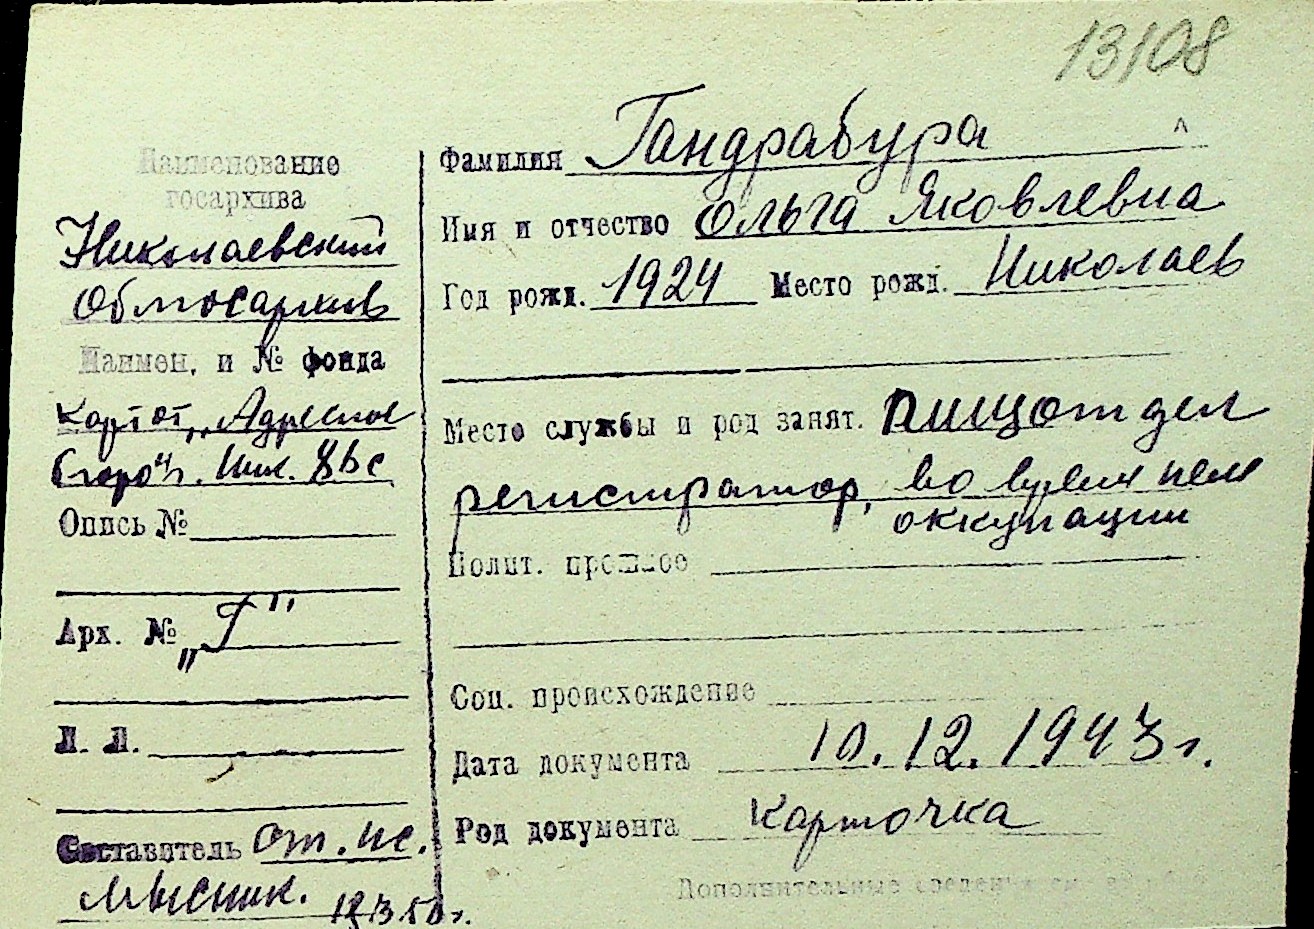 13108
Наименование
госархива
Николаевский
Облгосархив
Наимен. и № фонда
Картот. „Адресное
бюро" г. Ник.
Опись №
Арх. № „Г"
Л. Л.
Составитель ст. н.с.
Мысник.
Фамилия Гандрабура
Имя и отчество Ольга Яковлевна
Год рожд. 1924 Место рожд. Николаев
Место службы и род занят. пищотдел
регистратор, во время нем
оккупации
Полит. прошлое
Соц. происхождение
Дата документа 10.12.1943 г.
Род документа карточка
Дополнительные сведения см. на обор